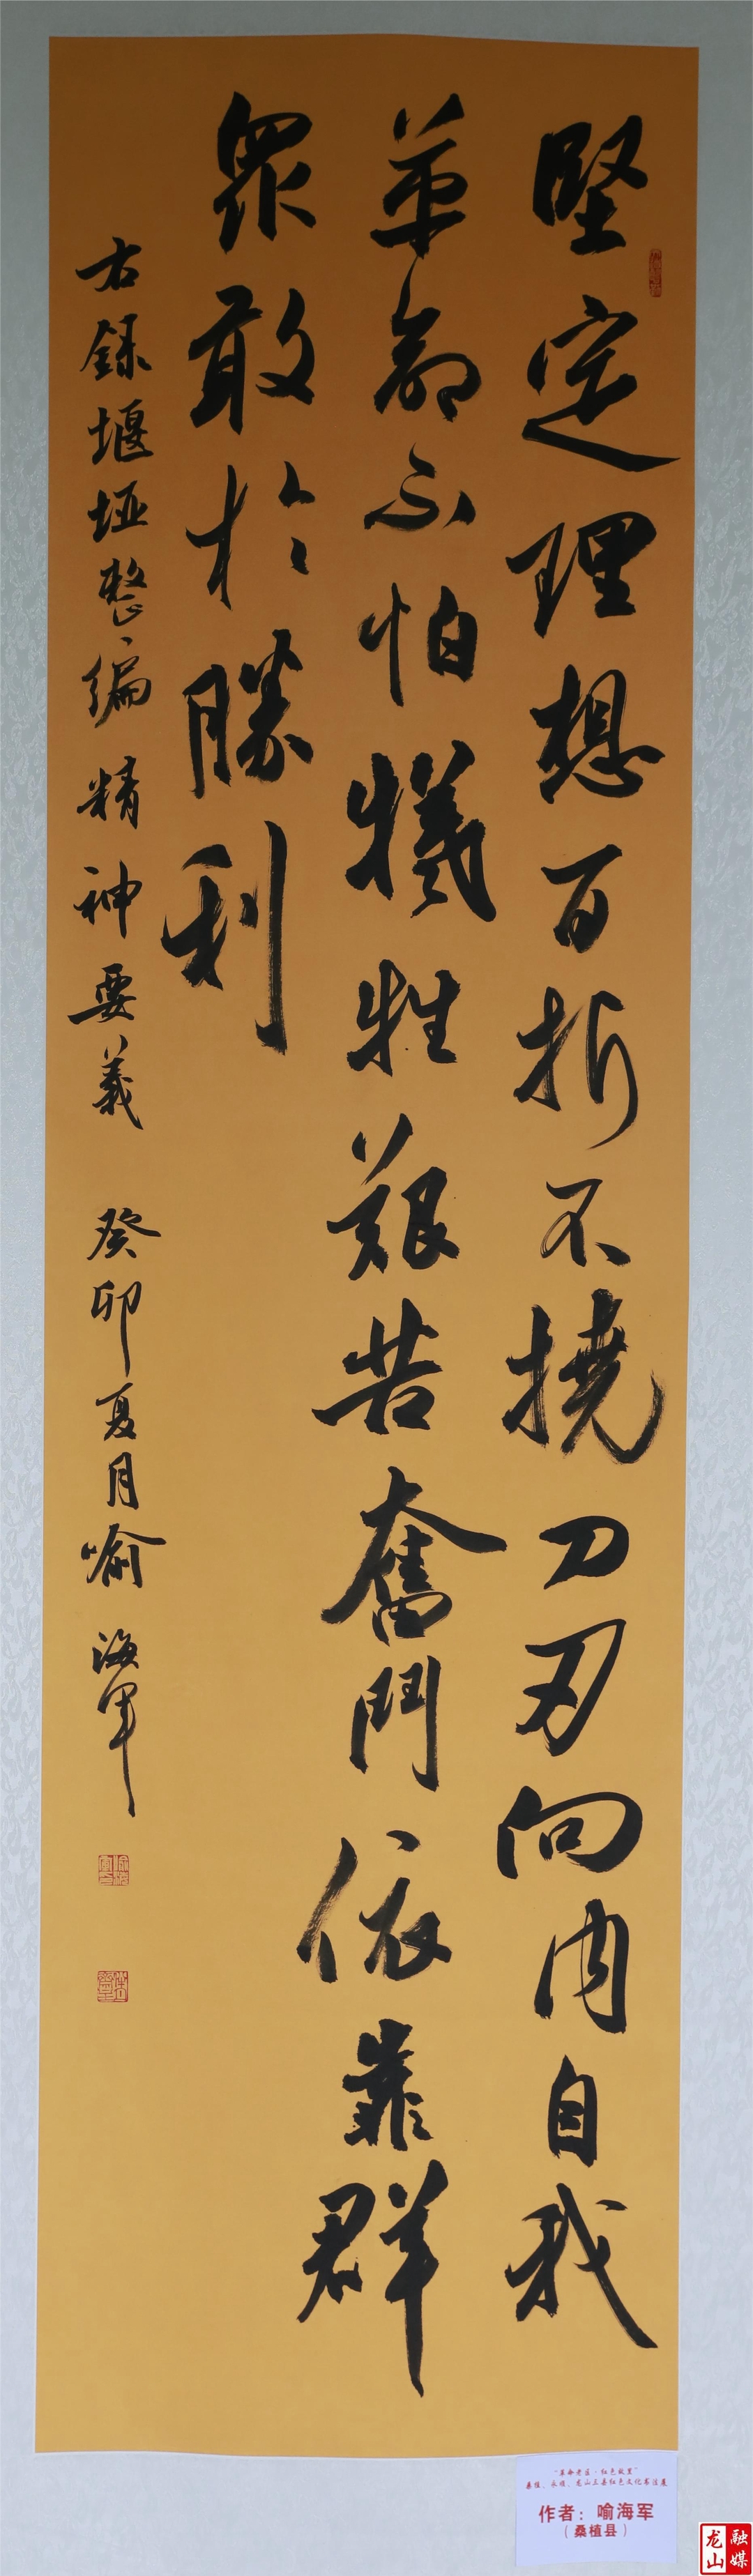 堅定理想百折不撓刀刃向内自我
革命不怕犧牲艱苦奮鬥依靠群
眾敢於勝利
右録堰垭整编精神要義 癸卯夏月喻海军
“革命老区·红色故里”
桑植、永顺、龙山三县红色文化书法展
作者：喻海军
（桑植县）
龙山融媒